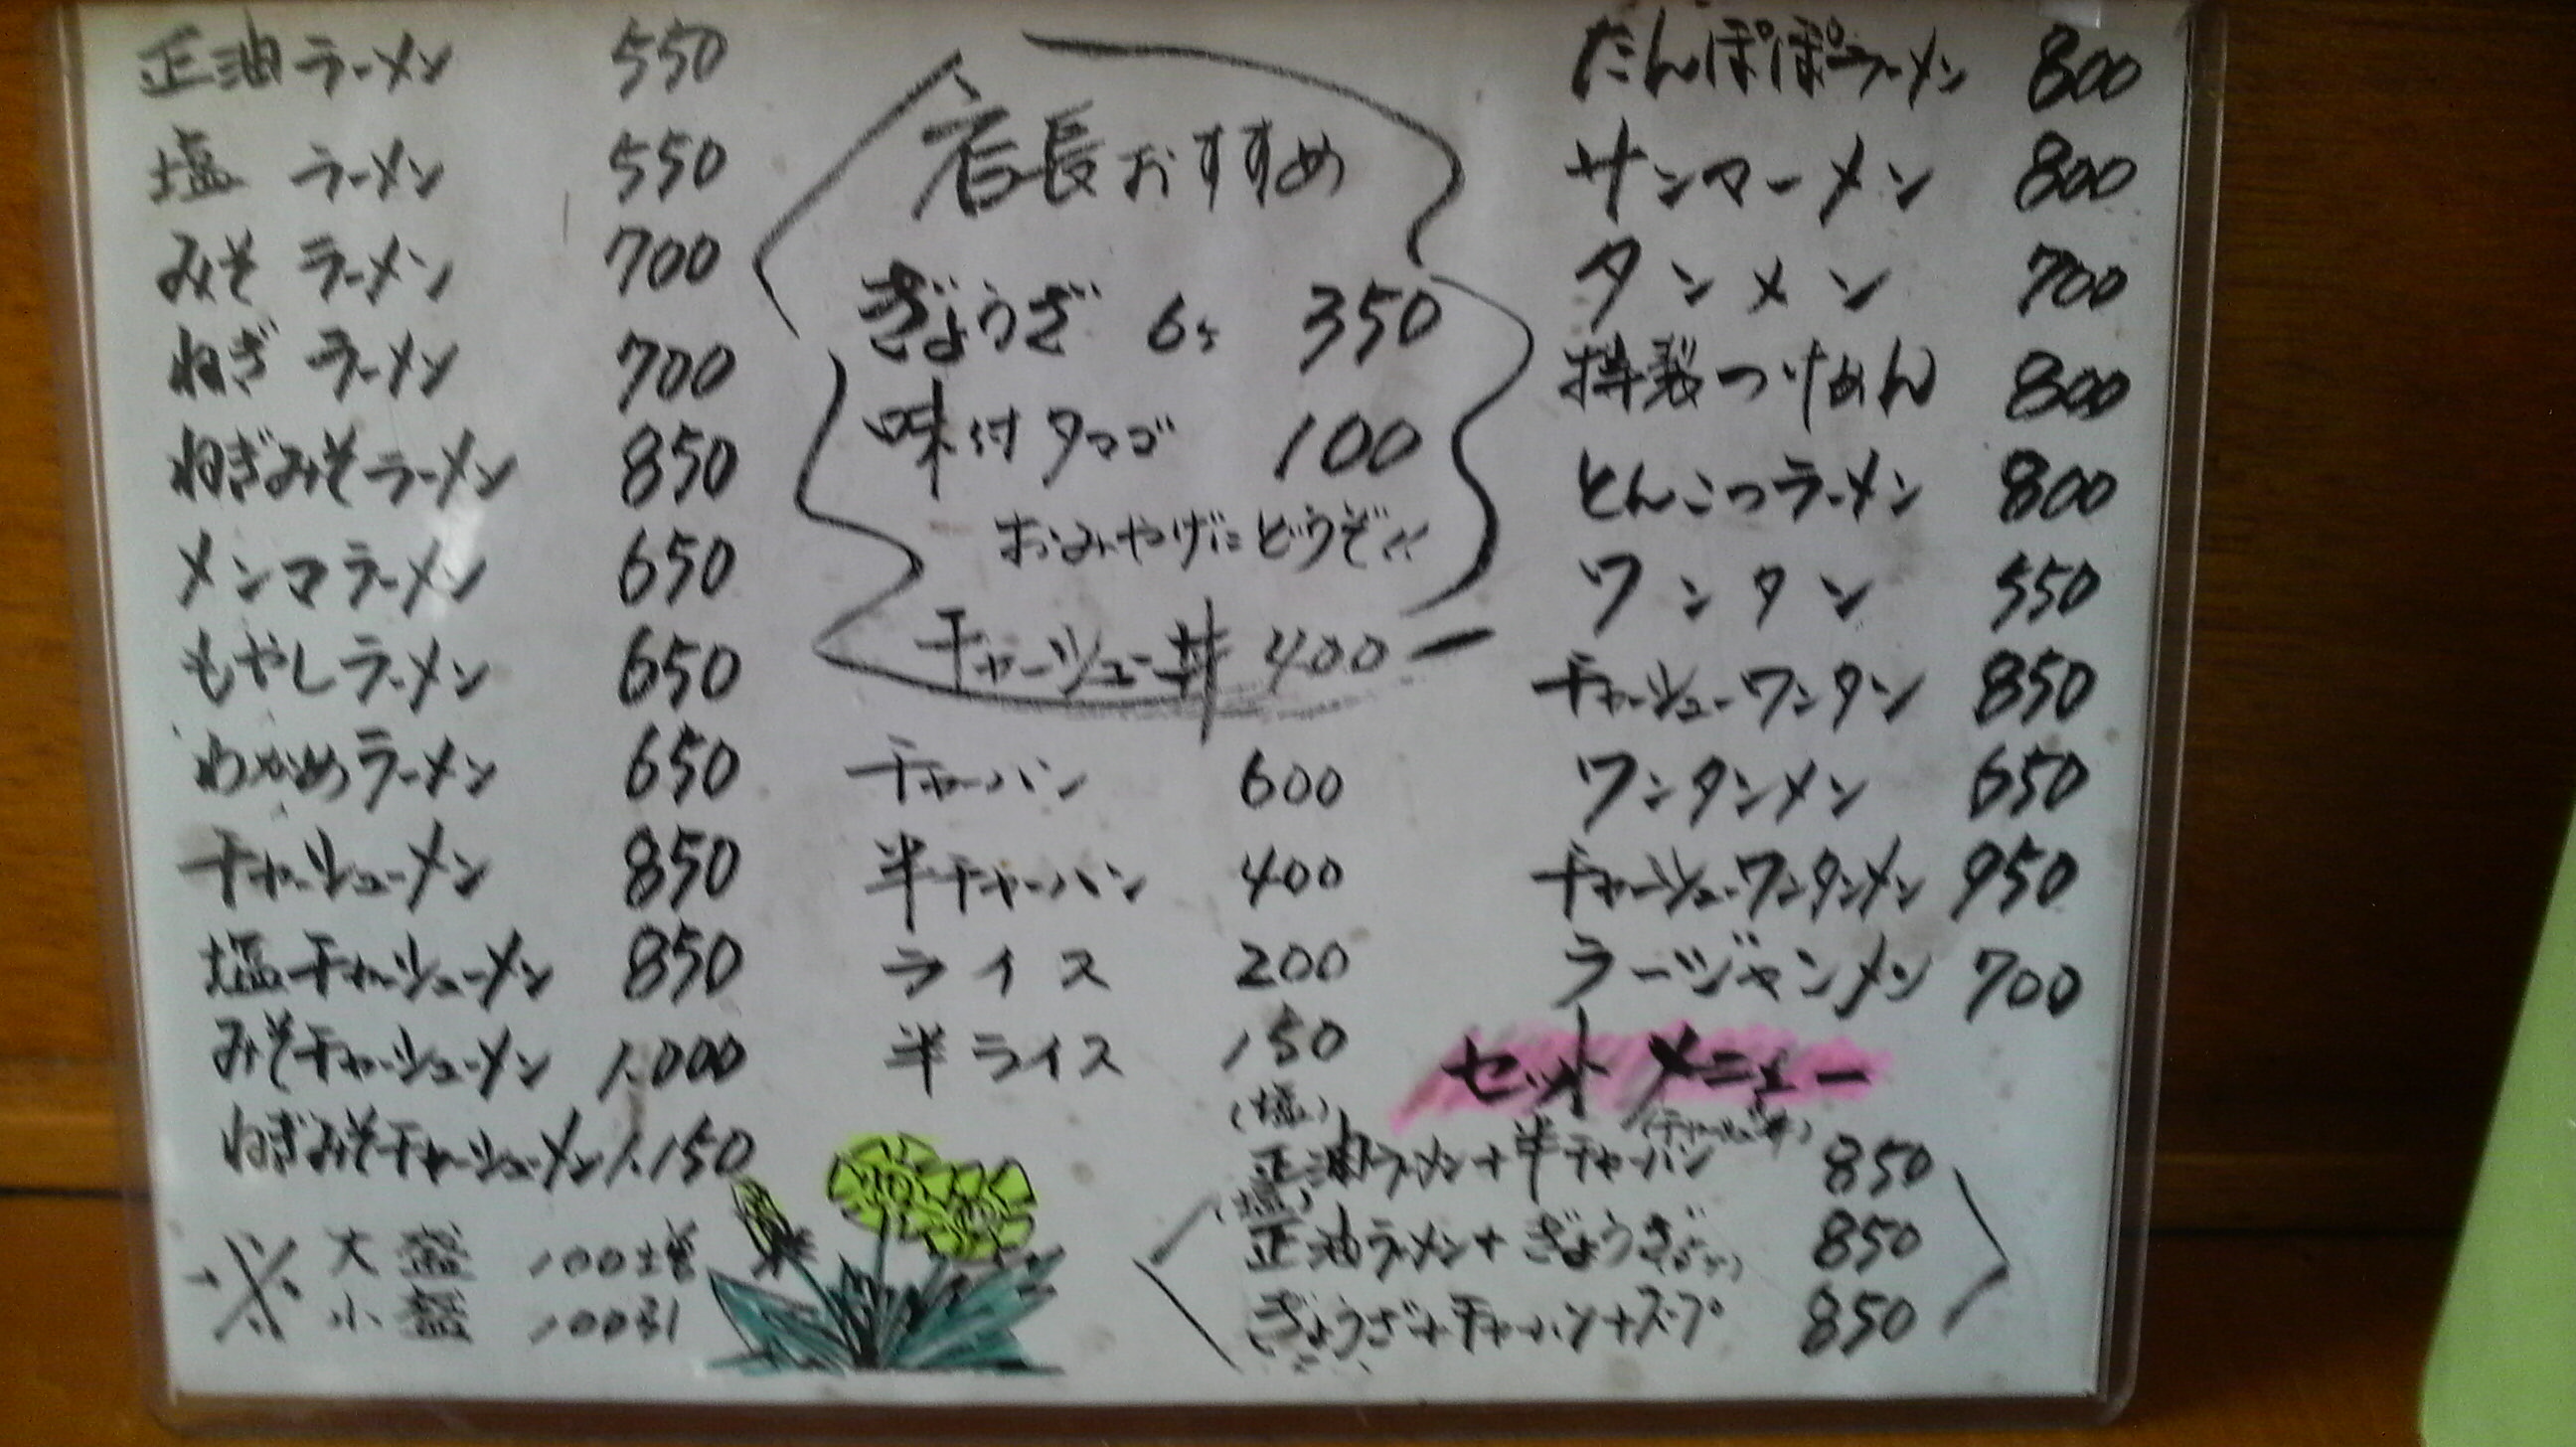 正油ラーメン 550
塩ラーメン 550
みそラーメン 700
ねぎラーメン 700
ねぎみそラーメン 850
メンマラーメン 650
もやしラーメン 650
わかめラーメン 650
チャーシューメン 850
塩チャーシューメン 850
みそチャーシューメン 1.000
ねぎみそチャーシューメン 1.150
※ 大盛 100増
小盛 100引
店長おすすめ
ぎょうざ 6ヶ 350
味付タマゴ 100
おみやげにどうぞ!!
チャーシュー丼 400
チャーハン 600
半チャーハン 400
ライス 200
半ライス 150
たんぽぽラーメン 800
サンマーメン 800
タンメン 700
特製つけめん 800
とんこつラーメン 800
ワンタン 550
チャーシューワンタン 850
ワンタンメン 650
チャーシューワンタンメン 950
ラージャンメン 700
セットメニュー
(塩) (チャーシュー丼)
正油ラーメン+半チャーハン 850
(塩)
正油ラーメン+ぎょうざ 850
ぎょうざ+チャーハン+スープ 850